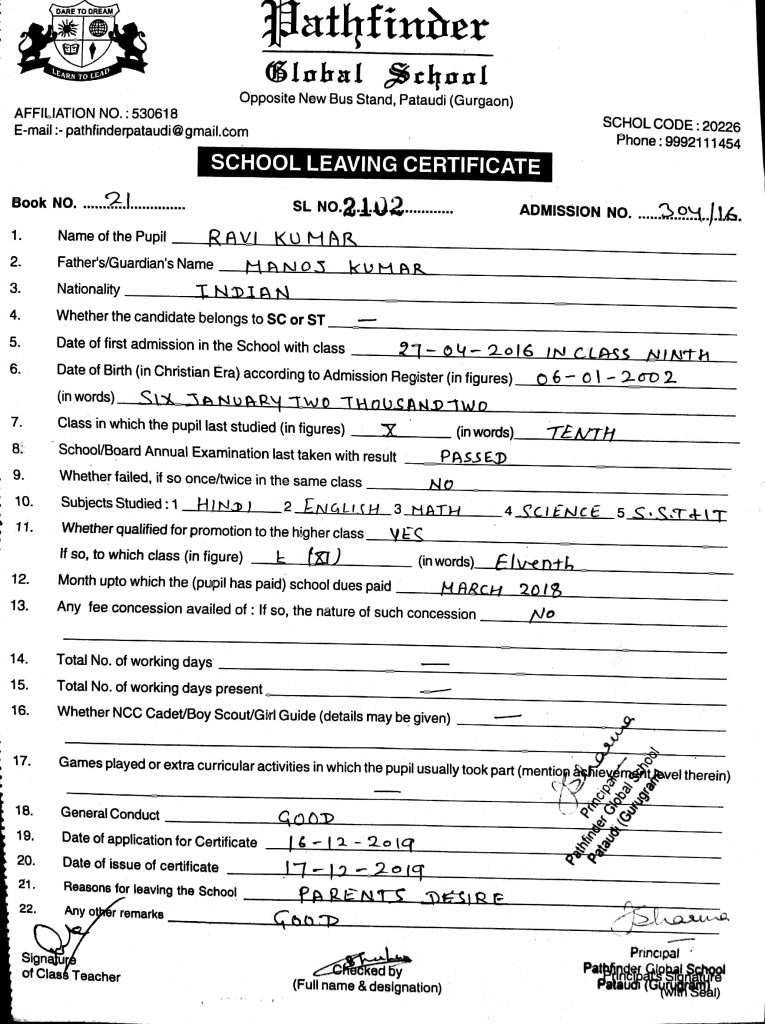 DARE TO DREAM
LEARN TO LEAD
Pathfinder
Global School
Opposite New Bus Stand, Pataudi (Gurgaon)
AFFILIATION NO. : 530618
SCHOL CODE : 20226
E-mail :- pathfinderpataudi@gmail.com
Phone : 9992111454
SCHOOL LEAVING CERTIFICATE
Book NO. ....21............. SL NO.2102............ ADMISSION NO. .....304/16.
1. Name of the Pupil RAVI KUMAR
2. Father's/Guardian's Name MANOJ KUMAR
3. Nationality INDIAN
4. Whether the candidate belongs to SC or ST —
5. Date of first admission in the School with class 27-04-2016 IN CLASS NINTH
6. Date of Birth (in Christian Era) according to Admission Register (in figures) 06-01-2002
(in words) SIX JANUARY TWO THOUSAND TWO
7. Class in which the pupil last studied (in figures) X (in words) TENTH
8. School/Board Annual Examination last taken with result PASSED
9. Whether failed, if so once/twice in the same class NO
10. Subjects Studied : 1 HINDI 2 ENGLISH 3 MATH 4 SCIENCE 5 S.S.T & IT
11. Whether qualified for promotion to the higher class YES
If so, to which class (in figure) (XI) (in words) Elventh
12. Month upto which the (pupil has paid) school dues paid MARCH 2018
13. Any fee concession availed of : If so, the nature of such concession NO
14. Total No. of working days —
15. Total No. of working days present —
16. Whether NCC Cadet/Boy Scout/Girl Guide (details may be given) —
17. Games played or extra curricular activities in which the pupil usually took part (mention achievement level therein)
—
Sharma
Principal
Pathfinder Global School
Pataudi (Gurugram)
18. General Conduct GOOD
19. Date of application for Certificate 16-12-2019
20. Date of issue of certificate 17-12-2019
21. Reasons for leaving the School PARENTS DESIRE
22. Any other remarks GOOD
Sharma
Signature
of Class Teacher
Checked by
(Full name & designation)
Principal
Pathfinder Global School
Principal's Signature
Pataudi (Gurugram)
(with Seal)